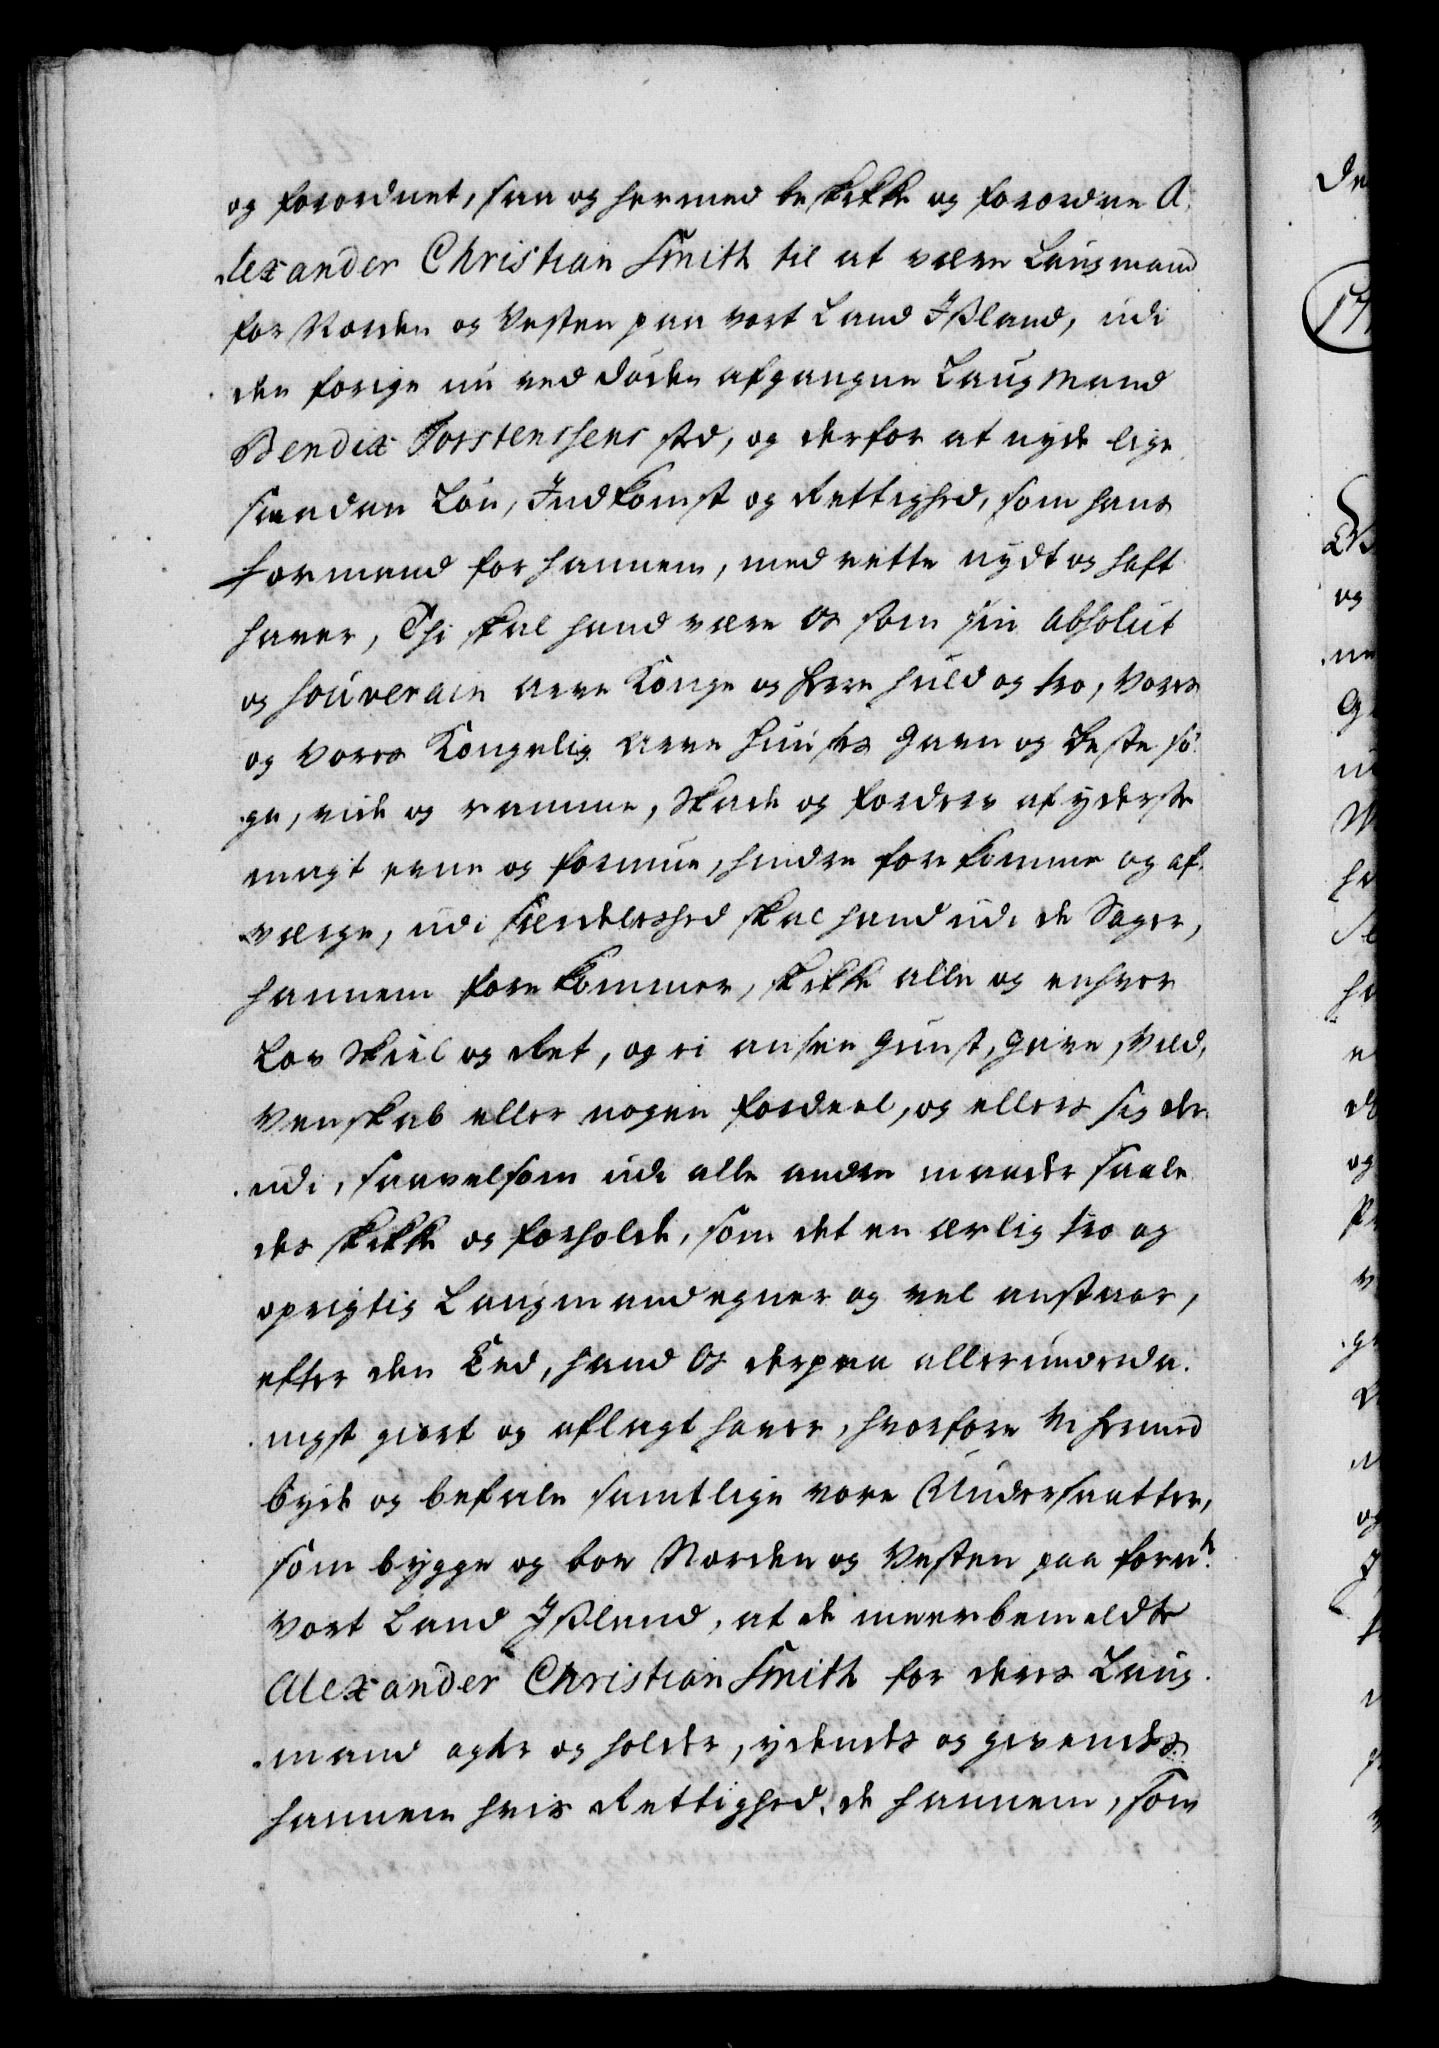 og forordnet, saa og hermed beskikke og forordne A-
lexander Christian Smith til at være Laugmand
for Norden og Vesten paa vort Land Ißland, udi
den forige nu ved døden afgangne Laugmand
Bendix Torstenshens sted, og derfor at nyde lige
saadan Løn, Indkomst og Rettighed, som hans
Formand for hannem, med rette nydt og haft
haver, Thi skal hand være Os som sin absolut
og souverain Arve Konge og Herre huld og tro, Vores
og Vores Kongelig Arve Huuses Gavn og Beste sø-
ge, vide og ramme, Skade og fordærv af yderste
magt evne og formue, hindre forekomme og af-
værge, udi Særdeleshed skal hand udi de Sager,
hannem forekommer, skikke alle og enhver
Lov Skiel og Ret, og ei ansee Gunst, Gave, Vild,
Venskab eller nogen fordeel, og ellers sig der-
udi, saavelsom udi alle andre maader saale-
des skikke og forholde, som det en ærlig tro og
oprigtig Laugmand egner og vel anstaar,
efter den Eed, hand Os derpaa allerunderda-
nigst giort og aflagt haver, hvorfore Vi hermed
byde og befale samtlige vore Undersaatter,
som bygge og boe Norden og Vesten paa fornte.
Vort Land Ißland, at de meerbemeldte
Alexander Christian Smith for deres Laug-
mand agte og holde, ydendes og givendes
hannem hvis Rettighed, de hannem, som